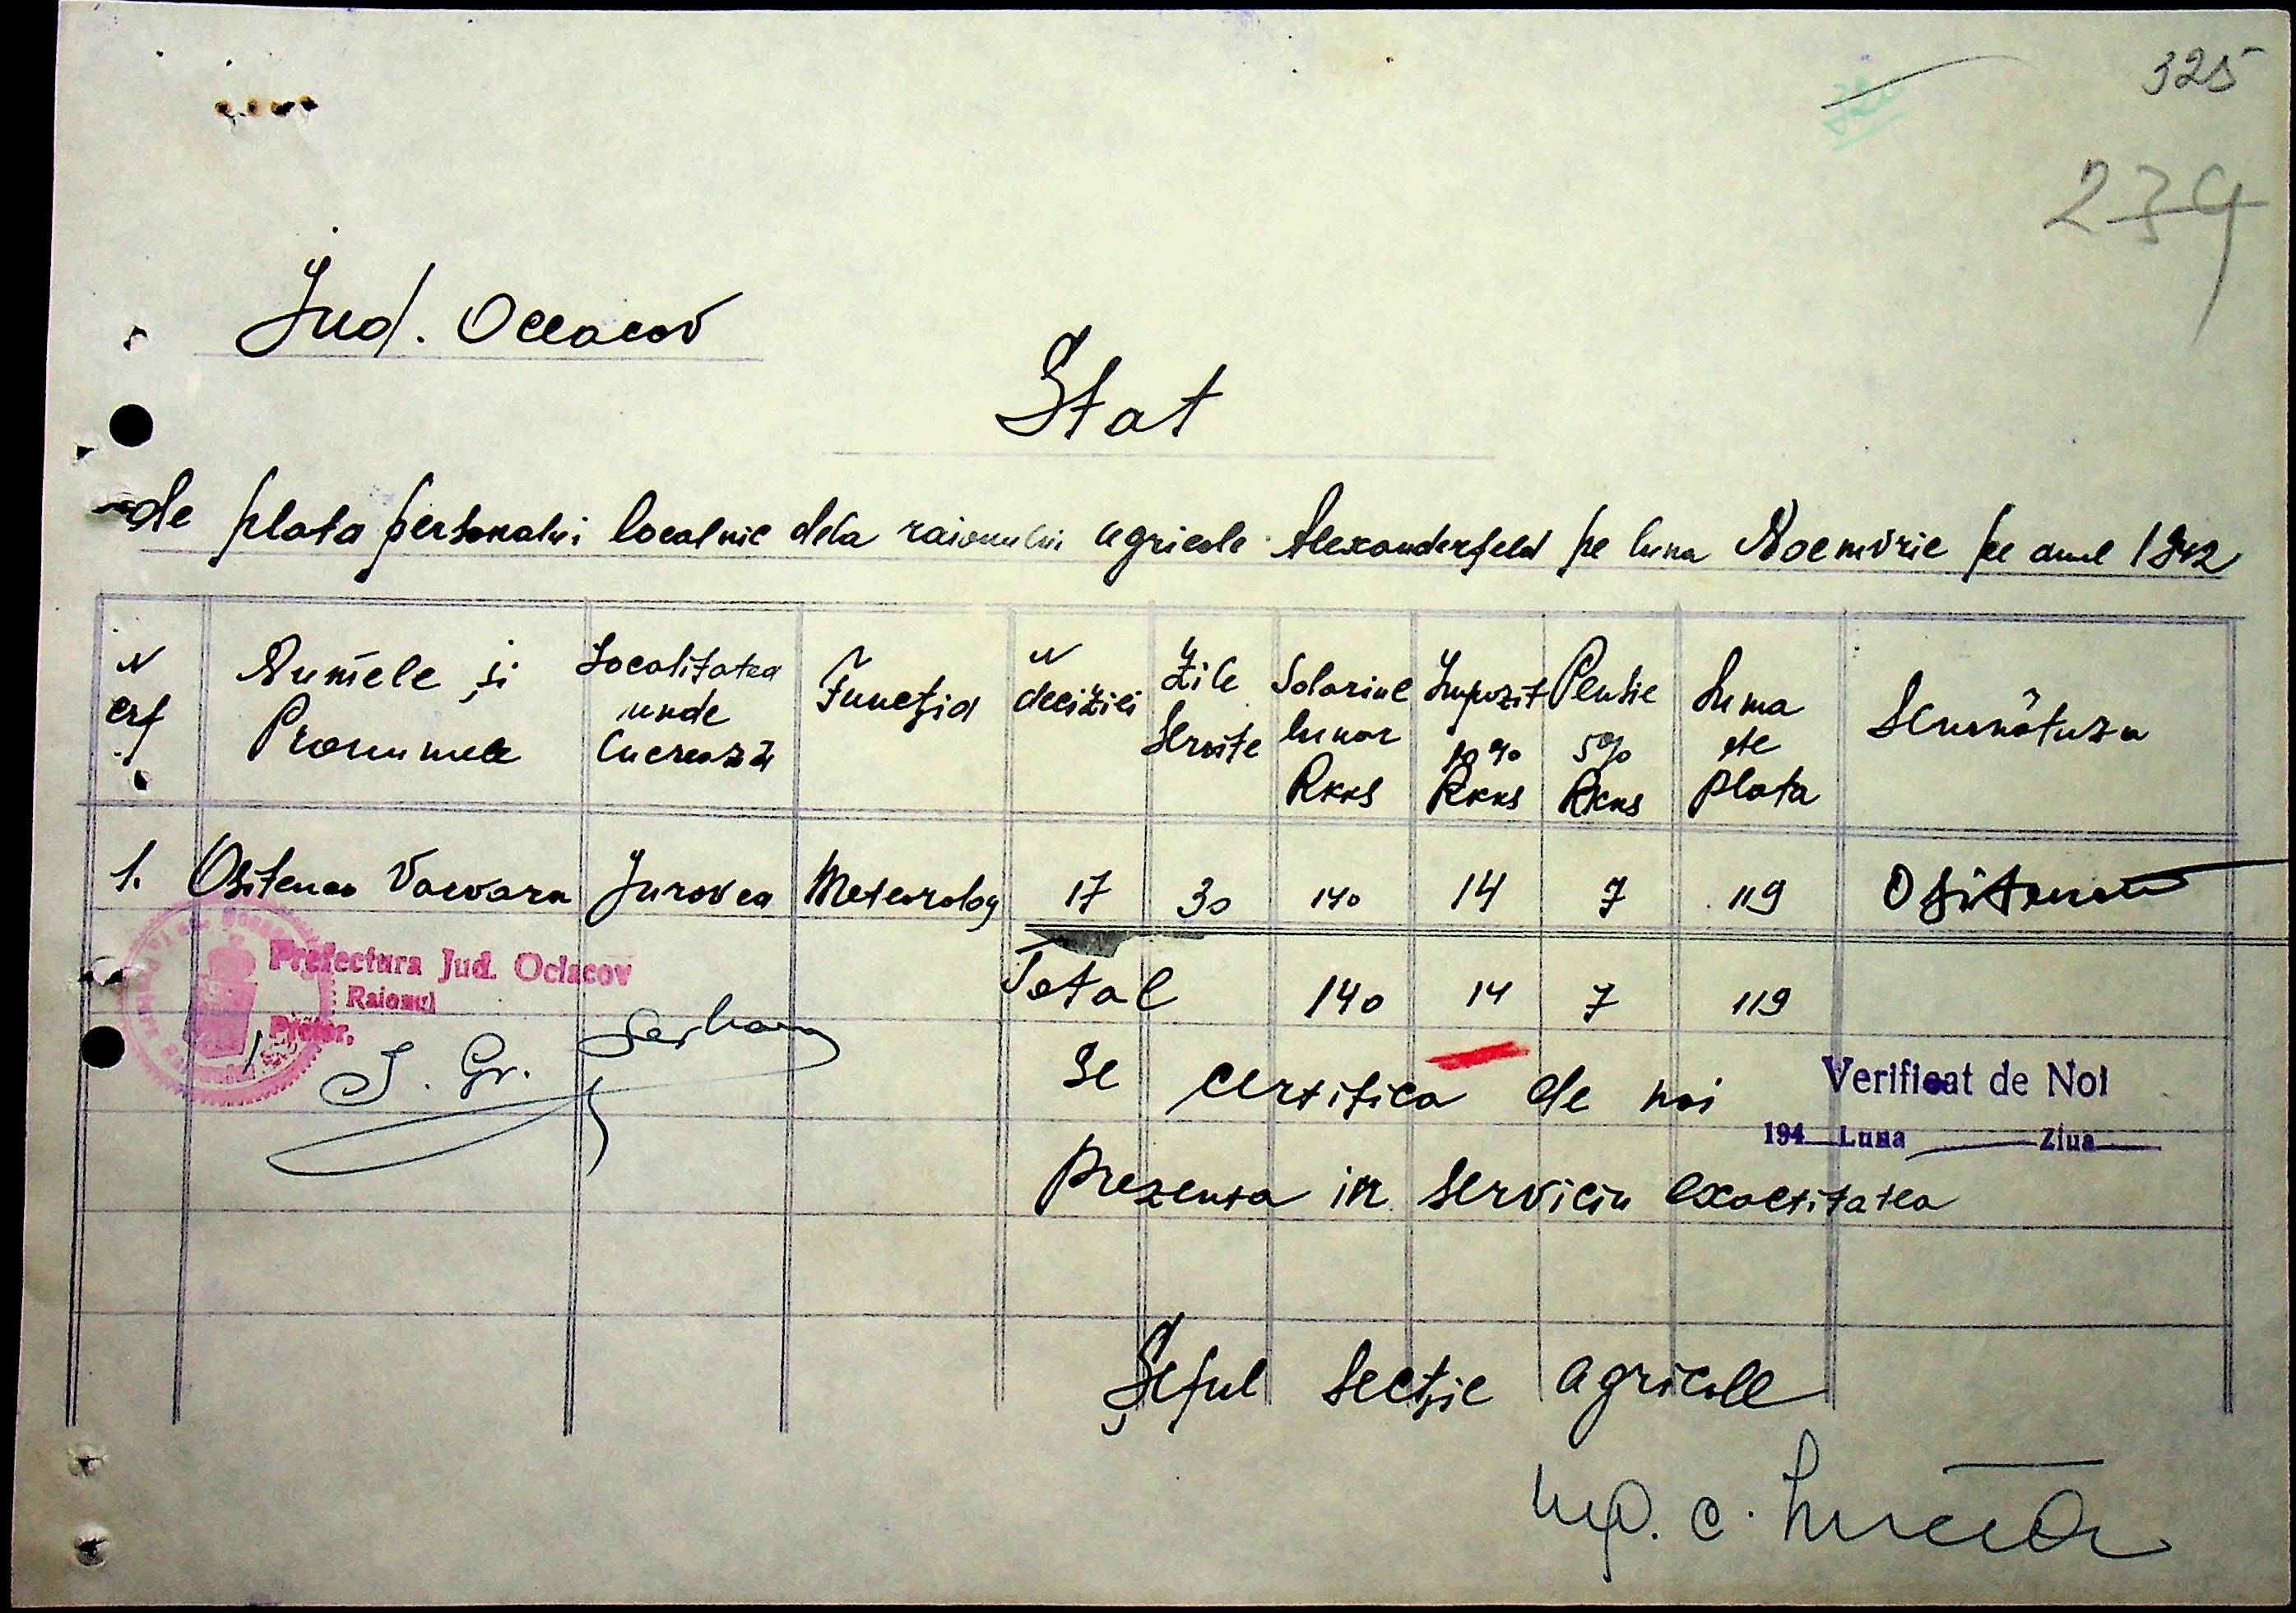 325
234
Jud. Oceacov
Stat
de plata personalui localnic dela raionului agricole Alexanderfeld pe luna Noemvrie pe anul 1942
N crt. Numele și Pronumele Localitatea unde lucrează Funcția N deciziei Zile servite Salariul lunar Rkks Impozit 10% Rkks Pensie 5% Rkks Suma de plata Semnătura
1. Ositenco Varvara Jurovca Meteorolog 17 30 140 14 7 119
Total 140 14 7 119
Prefectura Jud. Oclacov
Raionul
Pretor.
Se certifica de noi
Verificat de Noi
194 Luna Ziua
prezența in serviciu exactitatea
Șeful secție agricole